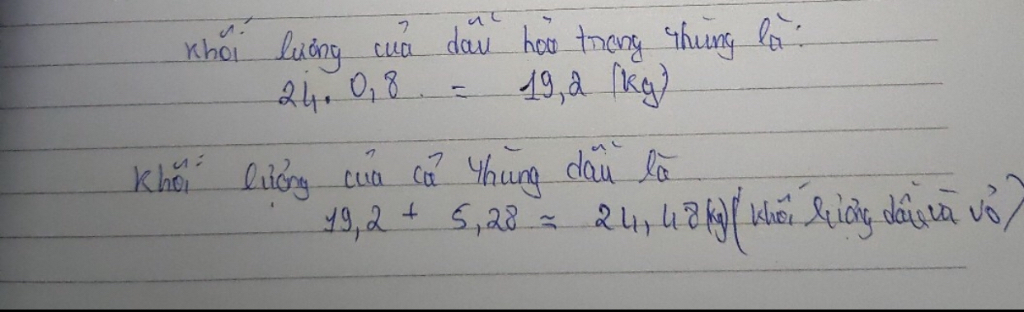 Khối lượng của dầu hỏa trong thùng là:
24. 0,8 = 19,2 (kg)
Khối lượng của cả thùng dầu là
19,2 + 5,28 = 24,48 (kg) (khối lượng dầu và vỏ)